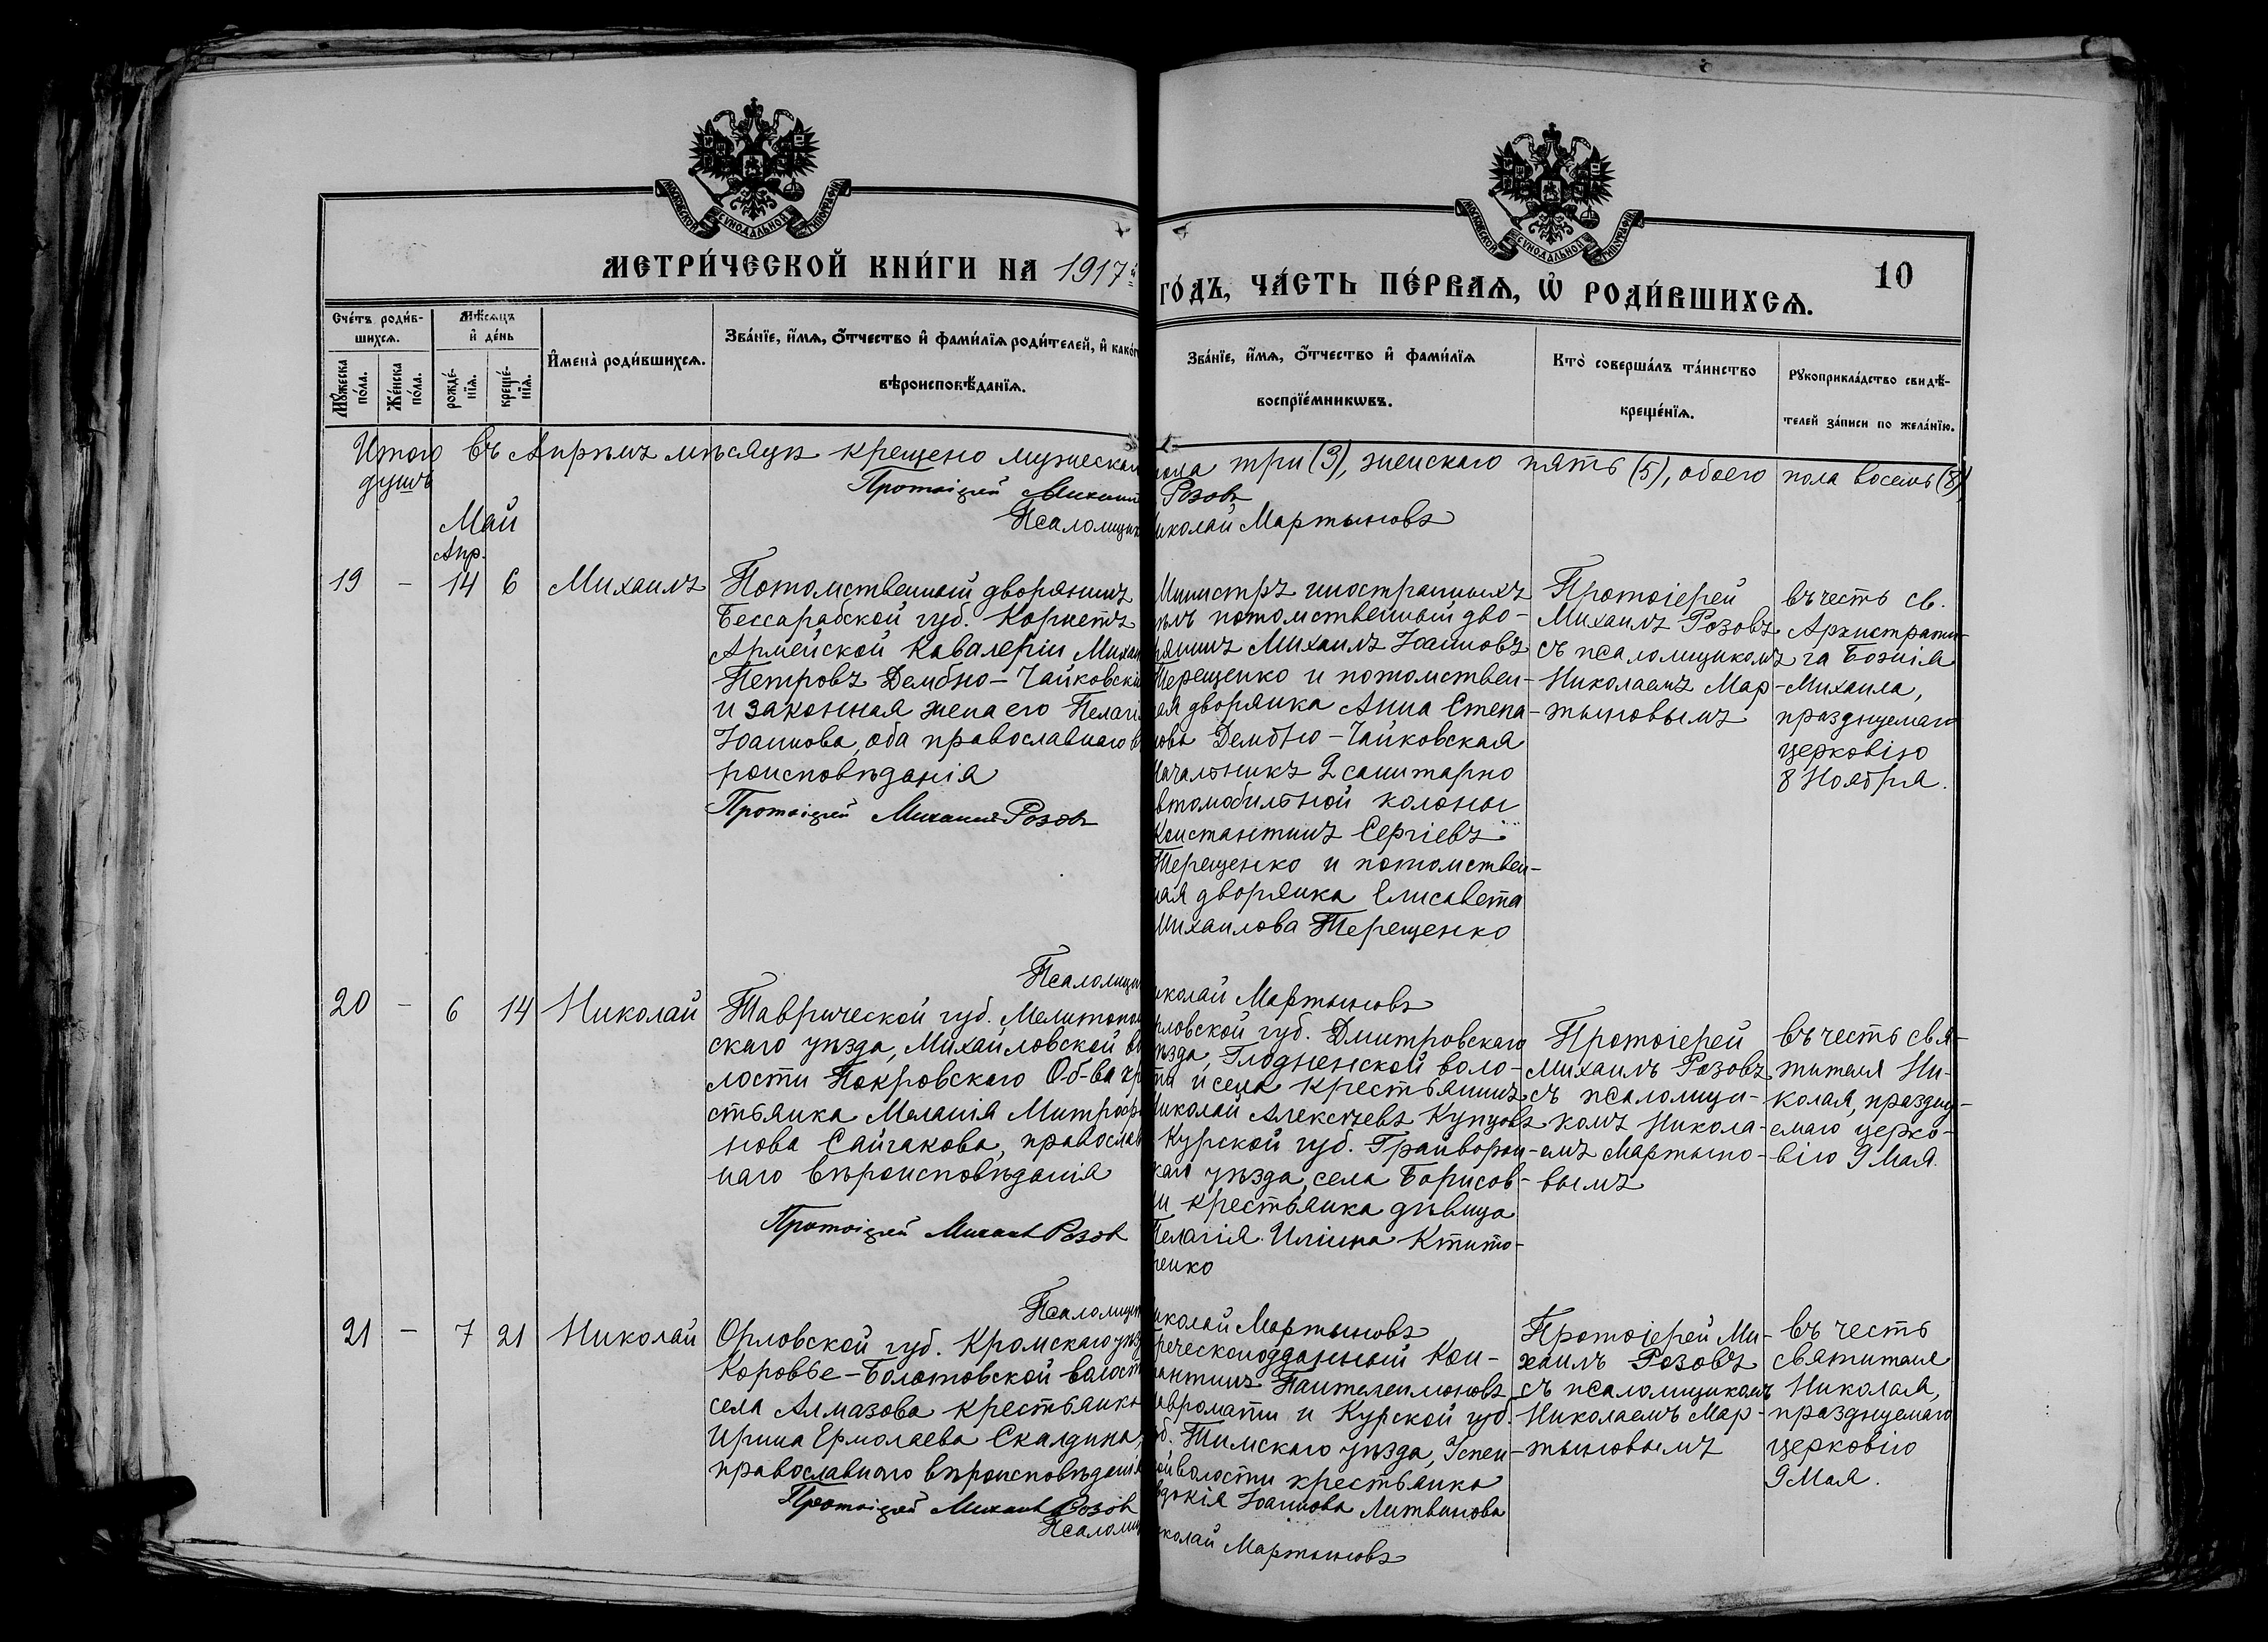 МОСКОВСКОЙ СѴНОДАЛЬНОЙ ТИПОГРАФІИ
МОСКОВСКОЙ СѴНОДАЛЬНОЙ ТИПОГРАФІИ
МЕТРИ́ЧЕСКОЙ КНИ́ГИ НА 1917й
ГО́ДЪ, ЧА́СТЬ ПЕ́РВАѦ, Ѽ РОДИ́ВШИХСѦ.
10
Сче́тъ роди́в-
шихсѧ.
Мꙋ́жеска
по́ла.
Же́нска
по́ла.
Мѣ́сѧцъ
и҆ де́нь
рожде́-
нїѧ.
креще́-
нїѧ.
И҆мена̀ роди́вшихсѧ.
Зва́нїе, и҆́мѧ, ѻ҆́тчество и҆ фами́лїѧ роди́телей, и҆ како́г
вѣроисповѣ́данїѧ.
Зва́нїе, и҆́мѧ, ѻ҆́тчество и҆ фами́лїѧ
воспрїе́мникѡвъ.
Кто̀ соверша́лъ та́инство
креще́нїѧ.
Рꙋкоприкла́дство свидѣ́-
телей за́писи по жела́нїю.
Итого въ Апрѣлѣ мѣсяцѣ крещено мужескаго
пола три (3), женскаго пять (5), обоего пола восемь (8)
душъ
Протоіерей Михаилъ
Розовъ
Псаломщик
иколай Мартыновъ
Май
Апр.
19 – 14 6 Михаилъ
Потомственный дворянинъ
Бессарабской губ. Корнетъ
Армейской Кавалеріи Михаи
Петровъ Дембно-Чайковскі
и законная жена его Пелаги
Іоаннова, оба православнаго в
роисповѣданія
Протоіерей Михаилъ Розовъ
Министръ иностранныхъ
дѣлъ потомственный дво-
рянинъ Михаилъ Іоанновъ
Терещенко и потомствен-
ная дворянка Анна Степа-
нова Дембно-Чайковская
Начальникъ 2 санитарно
автомобильной колоны
Константинъ Сергіевъ
Терещенко и потомствен-
ная дворянка Елисавета
Михаилова Терещенко
Протоіерей
Михаилъ Розовъ
съ псаломщикомъ
Николаемъ Мар-
тыновымъ
въ честь св.
Архистрати-
га Божія
Михаила,
празднуемаго
церковію
8 Ноября.
Псаломщик
иколай Мартыновъ
20 – 6 14 Николай
Таврической губ. Мелитопол
скаго уѣзда, Михайловской во
лости Покровскаго Об-ва кре
стьянка Меланія Митрофа
нова Сайгакова, православ
наго вѣроисповѣданія
Протоіерей Михаилъ Розовъ
рловской губ. Дмитровскаго
уѣзда, Глодненской воло-
сти и села крестьянинъ
Николай Алексѣевъ Купцовъ
Курской губ. Грайворон-
скаго уѣзда, села Борисов-
ки крестьянка дѣвица
Пелагія Иліина Ктито-
ренко
Протоіерей
Михаилъ Розовъ
съ псаломщи-
комъ Никола-
емъ Мартыно-
вымъ
въ честь свя-
тителя Ни-
колая, праздну-
емаго церко-
вію 9 Мая.
Псаломщик
иколай Мартыновъ
21 – 7 21 Николай
Орловской губ. Кромскаго уѣз
Коровье-Болотовской волост
села Алмазова крестьянка
Ирина Ермолаева Скалдина,
православнаго вѣроисповѣданія
Протоіерей Михаилъ Розовъ
греческоподданный Кон-
стантинъ Пантелеимоновъ
Мавромати и Курской губ.
Тимскаго уѣзда, Успен-
ской волости крестьянка
Евдокія Іоаннова Литвинова
Протоіерей Ми-
хаилъ Розовъ
съ псаломщикомъ
Николаемъ Мар-
тыновымъ
въ честь
святителя
Николая,
празднуемаго
церковію
9 Мая.
Псаломщ
иколай Мартыновъ